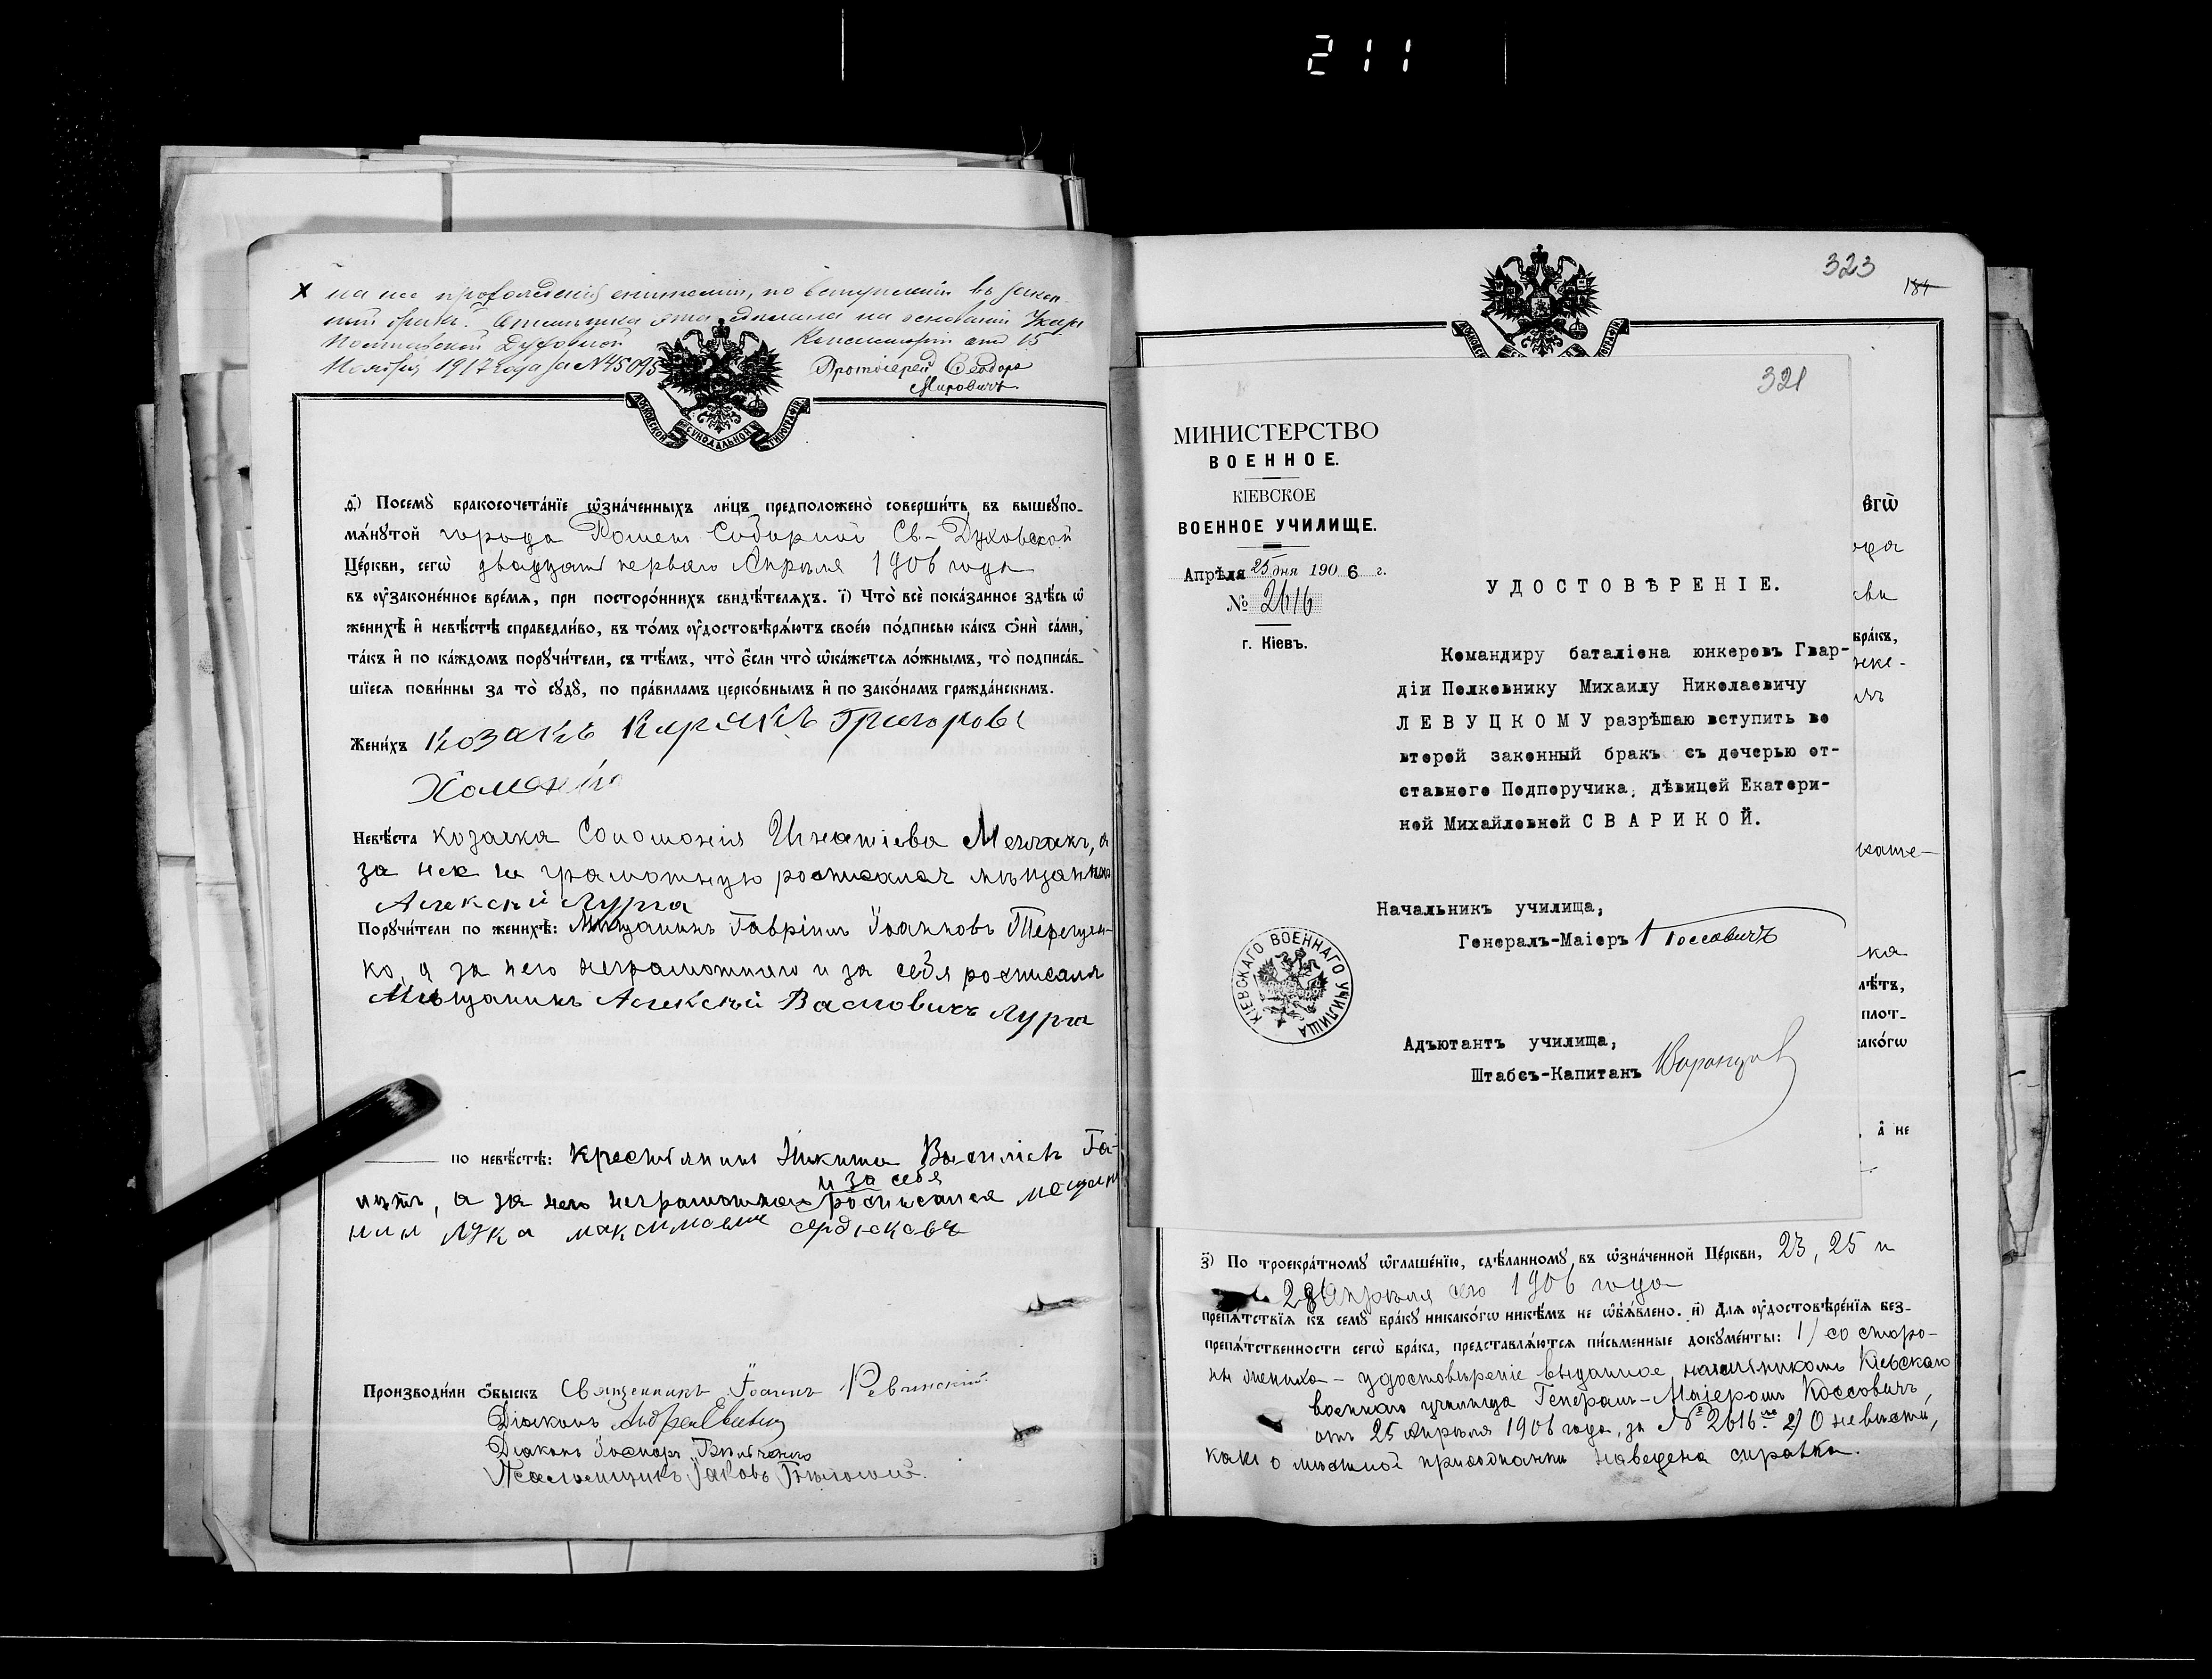 211
х на не
ный бракъ. Отмѣтка эта сдѣлана на основаніи Указа
Полтавской Духовной Консисторіи отъ 15
Ноября 1917 года за № 45095 Протоіерей Ѳеодоръ
Мировичъ
МОСКОВСКОЙ СѴНОДАЛЬНОЙ ТИПОГРАФІИ
д҃) Посемꙋ̀ бракосочета́нїе ѡ҆зна́ченныхъ ли́цъ предположено̀ соверши́ть въ вышеꙋпо-
мѧ́нꙋтой города Роменъ Соборной Св.-Духовской
Це́ркви, сегѡ̀ двадцать перваго Апрѣля 1906 года
въ ᲂу҆зако́ненное вре́мѧ, при посторо́ннихъ свидѣ́телѧхъ. і҃) Что̀ всѐ пока́занное здѣ́сь ѡ҆
женихѣ̀ и҆ невѣ́стѣ справедли́во, въ то́мъ ᲂу҆достовѣрѧ́ютъ свое́ю по́дписью ка́къ ѻ҆нѝ са́ми,
та́къ и҆ по ка́ждомъ порꙋчи́тели, съ тѣ́мъ, что̀ є҆́сли что̀ ѡ҆ка́жетсѧ ло́жнымъ, то̀ подписа́в-
шїесѧ пови́нны за то̀ сꙋдꙋ̀, по пра́виламъ церко́внымъ и҆ по зако́намъ гражда́нскимъ.
Жени́хъ козакъ Кирякъ Григоровъ
Невѣ́ста козачка Соломонія Игнатіева а
за нее не грамотную росписался мѣщанинъ
Алексѣй Лурга
Порꙋчи́тели по женихѣ̀: Мѣщанинъ Гавріилъ Іоанновъ Терещен-
ко, а за него неграмотнаго и за себя росписался
Мѣщанинъ Алексѣй Лурга
по невѣ́стѣ: крестьянинъ Никита Василіевъ Га-
и за себя
а за него неграмотнаго росписался мещан
нин лука максимович сердюковъ
Производи́ли ѻ҆́быскъ Священникъ Іоаннъ
Діаконъ Андрей
Діаконъ
Псаломщикъ Іаковъ
323
184
321
МИНИСТЕРСТВО
ВОЕННОЕ.
КІЕВСКОЕ
ВОЕННОЕ УЧИЛИЩЕ.
Апрѣля 25 дня 1906 г.
№ 2616
г. Кіевъ.
УДОСТОВѢРЕНІЕ.
Командиру баталіона юнкеровъ Гвар-
діи Полковнику Михаилу Николаевичу
ЛЕВУЦКОМУ разрѣшаю вступить во
второй законный бракъ съ дочерью от-
ставного Подпоручика, дѣвицей Екатери-
ной Михайловной СВАРИКОЙ.
Начальникъ училища,
Генералъ-Маіоръ Коссовичъ
КІЕВСКАГО ВОЕННАГО УЧИЛИЩА
Адъютантъ училища,
Штабсъ-Капитанъ
вгѡ̀
ода
бра́къ,
ка
лѣ́тъ,
плот-
како́гѡ
, а҆ не
з҃) По троекра́тномꙋ ѡ҆глаше́нїю, сдѣ́ланномꙋ въ ѡ҆зна́ченной Це́ркви, 23, 25 и
28 Апрѣля сего 1906 года
препѧ́тствїѧ къ семꙋ̀ бра́кꙋ никако́гѡ никѣ́мъ не ѡ҆б̾ѧ́влено. и҃) Длѧ ᲂу҆достовѣре́нїѧ без-
препѧ́тственности сегѡ̀ бра́ка, представлѧ́ютсѧ пи́сьменные докꙋме́нты: 1) со сторо-
ны жениха - удостовѣреніе выданное начальникомъ Кіевскаго
военнаго училища Генералъ-Маіоромъ Коссовичъ,
отъ 25 Апрѣля 1906 года, за № 2616. 2) О невѣстѣ,
какъ о мѣстной прихожанкѣ наведена справка.